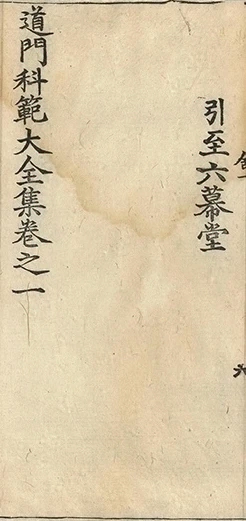 引至六幕堂
道門科範大全集卷之一